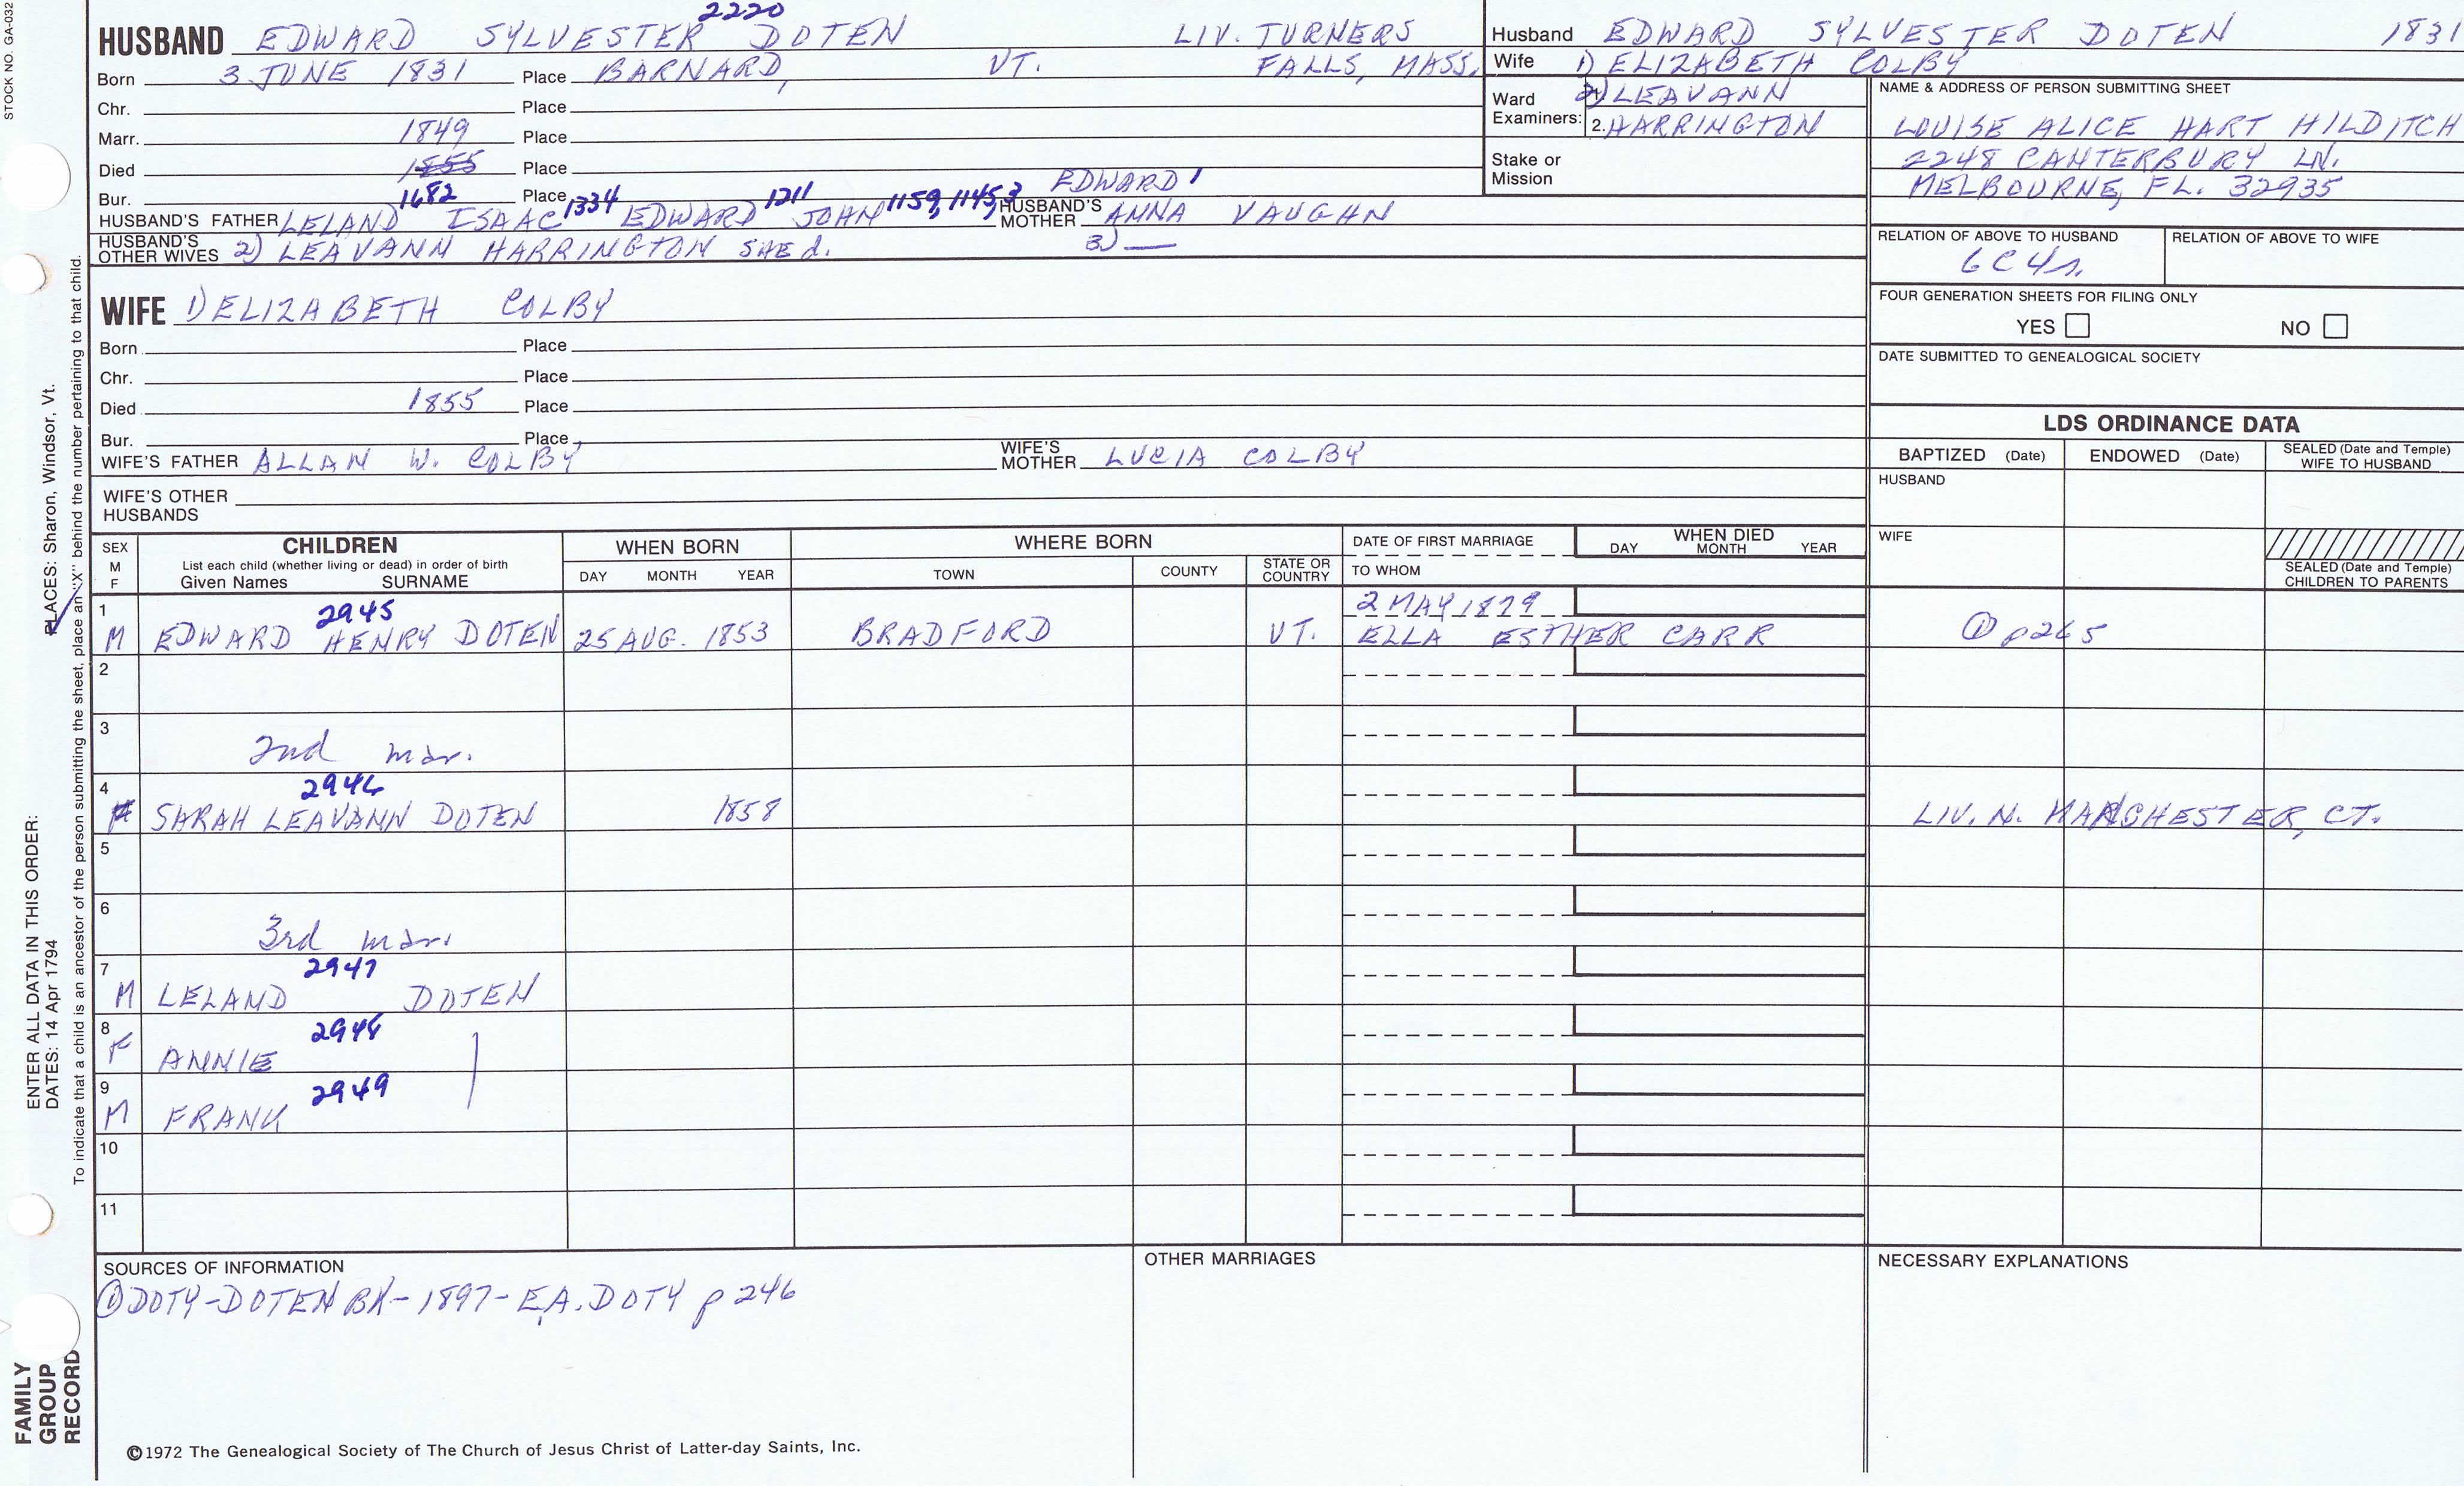 STOCK NO. GA-032
2220
HUSBAND EDWARD SYLVESTER DOTEN LIV. TURNERS
Born 3 JUNE 1831 Place BARNARD, VT. FALLS, MASS.
Chr. Place
Marr. 1849 Place
Died 1855 Place
Bur. Place
1682 1334 1211 1159, 1145, 3 EDWARD 1
HUSBAND'S FATHER LELAND ISAAC EDWARD JOHN HUSBAND'S MOTHER ANNA VAUGHN
HUSBAND'S OTHER WIVES 2) LEAVANN HARRINGTON SHE d. 3) —
WIFE 1) ELIZABETH COLBY
Born Place
Chr. Place
Died 1855 Place
Bur. Place
WIFE'S FATHER ALLAN W. COLBY WIFE'S MOTHER LUCIA COLBY
WIFE'S OTHER HUSBANDS
Husband EDWARD SYLVESTER DOTEN 1831
Wife 1) ELIZABETH COLBY
Ward Examiners: 1. 2) LEAVANN
2. HARRINGTON
Stake or Mission
NAME & ADDRESS OF PERSON SUBMITTING SHEET
LOUISE ALICE HART HILDITCH
2248 CANTERBURY LN.
MELBOURNE, FL. 32935
RELATION OF ABOVE TO HUSBAND RELATION OF ABOVE TO WIFE
6C4r.
FOUR GENERATION SHEETS FOR FILING ONLY
YES NO
DATE SUBMITTED TO GENEALOGICAL SOCIETY
LDS ORDINANCE DATA
BAPTIZED (Date) ENDOWED (Date) SEALED (Date and Temple) WIFE TO HUSBAND
HUSBAND
WIFE
SEALED (Date and Temple) CHILDREN TO PARENTS
SEX M F
CHILDREN
List each child (whether living or dead) in order of birth
Given Names SURNAME
WHEN BORN
DAY MONTH YEAR
WHERE BORN
TOWN COUNTY STATE OR COUNTRY
DATE OF FIRST MARRIAGE
TO WHOM
WHEN DIED
DAY MONTH YEAR
1 2945 2 MAY 1879
M EDWARD HENRY DOTEN 25 AUG. 1853 BRADFORD VT. ELLA ESTHER CARR ① p265
2
3
2nd mar.
4 2946
F SARAH LEAVANN DOTEN 1858 LIV. N. MANCHESTER, CT.
5
6
3rd mar.
7 2947
M LELAND DOTEN
8 2948
F ANNIE
9 2949
M FRANK
10
11
SOURCES OF INFORMATION
① DOTY-DOTEN BK-1897-E.A. DOTY p 246
OTHER MARRIAGES
NECESSARY EXPLANATIONS
©1972 The Genealogical Society of The Church of Jesus Christ of Latter-day Saints, Inc.
FAMILY GROUP RECORD
ENTER ALL DATA IN THIS ORDER:
DATES: 14 Apr 1794
PLACES: Sharon, Windsor, Vt.
To indicate that a child is an ancestor of the person submitting the sheet, place an "X" behind the number pertaining to that child.